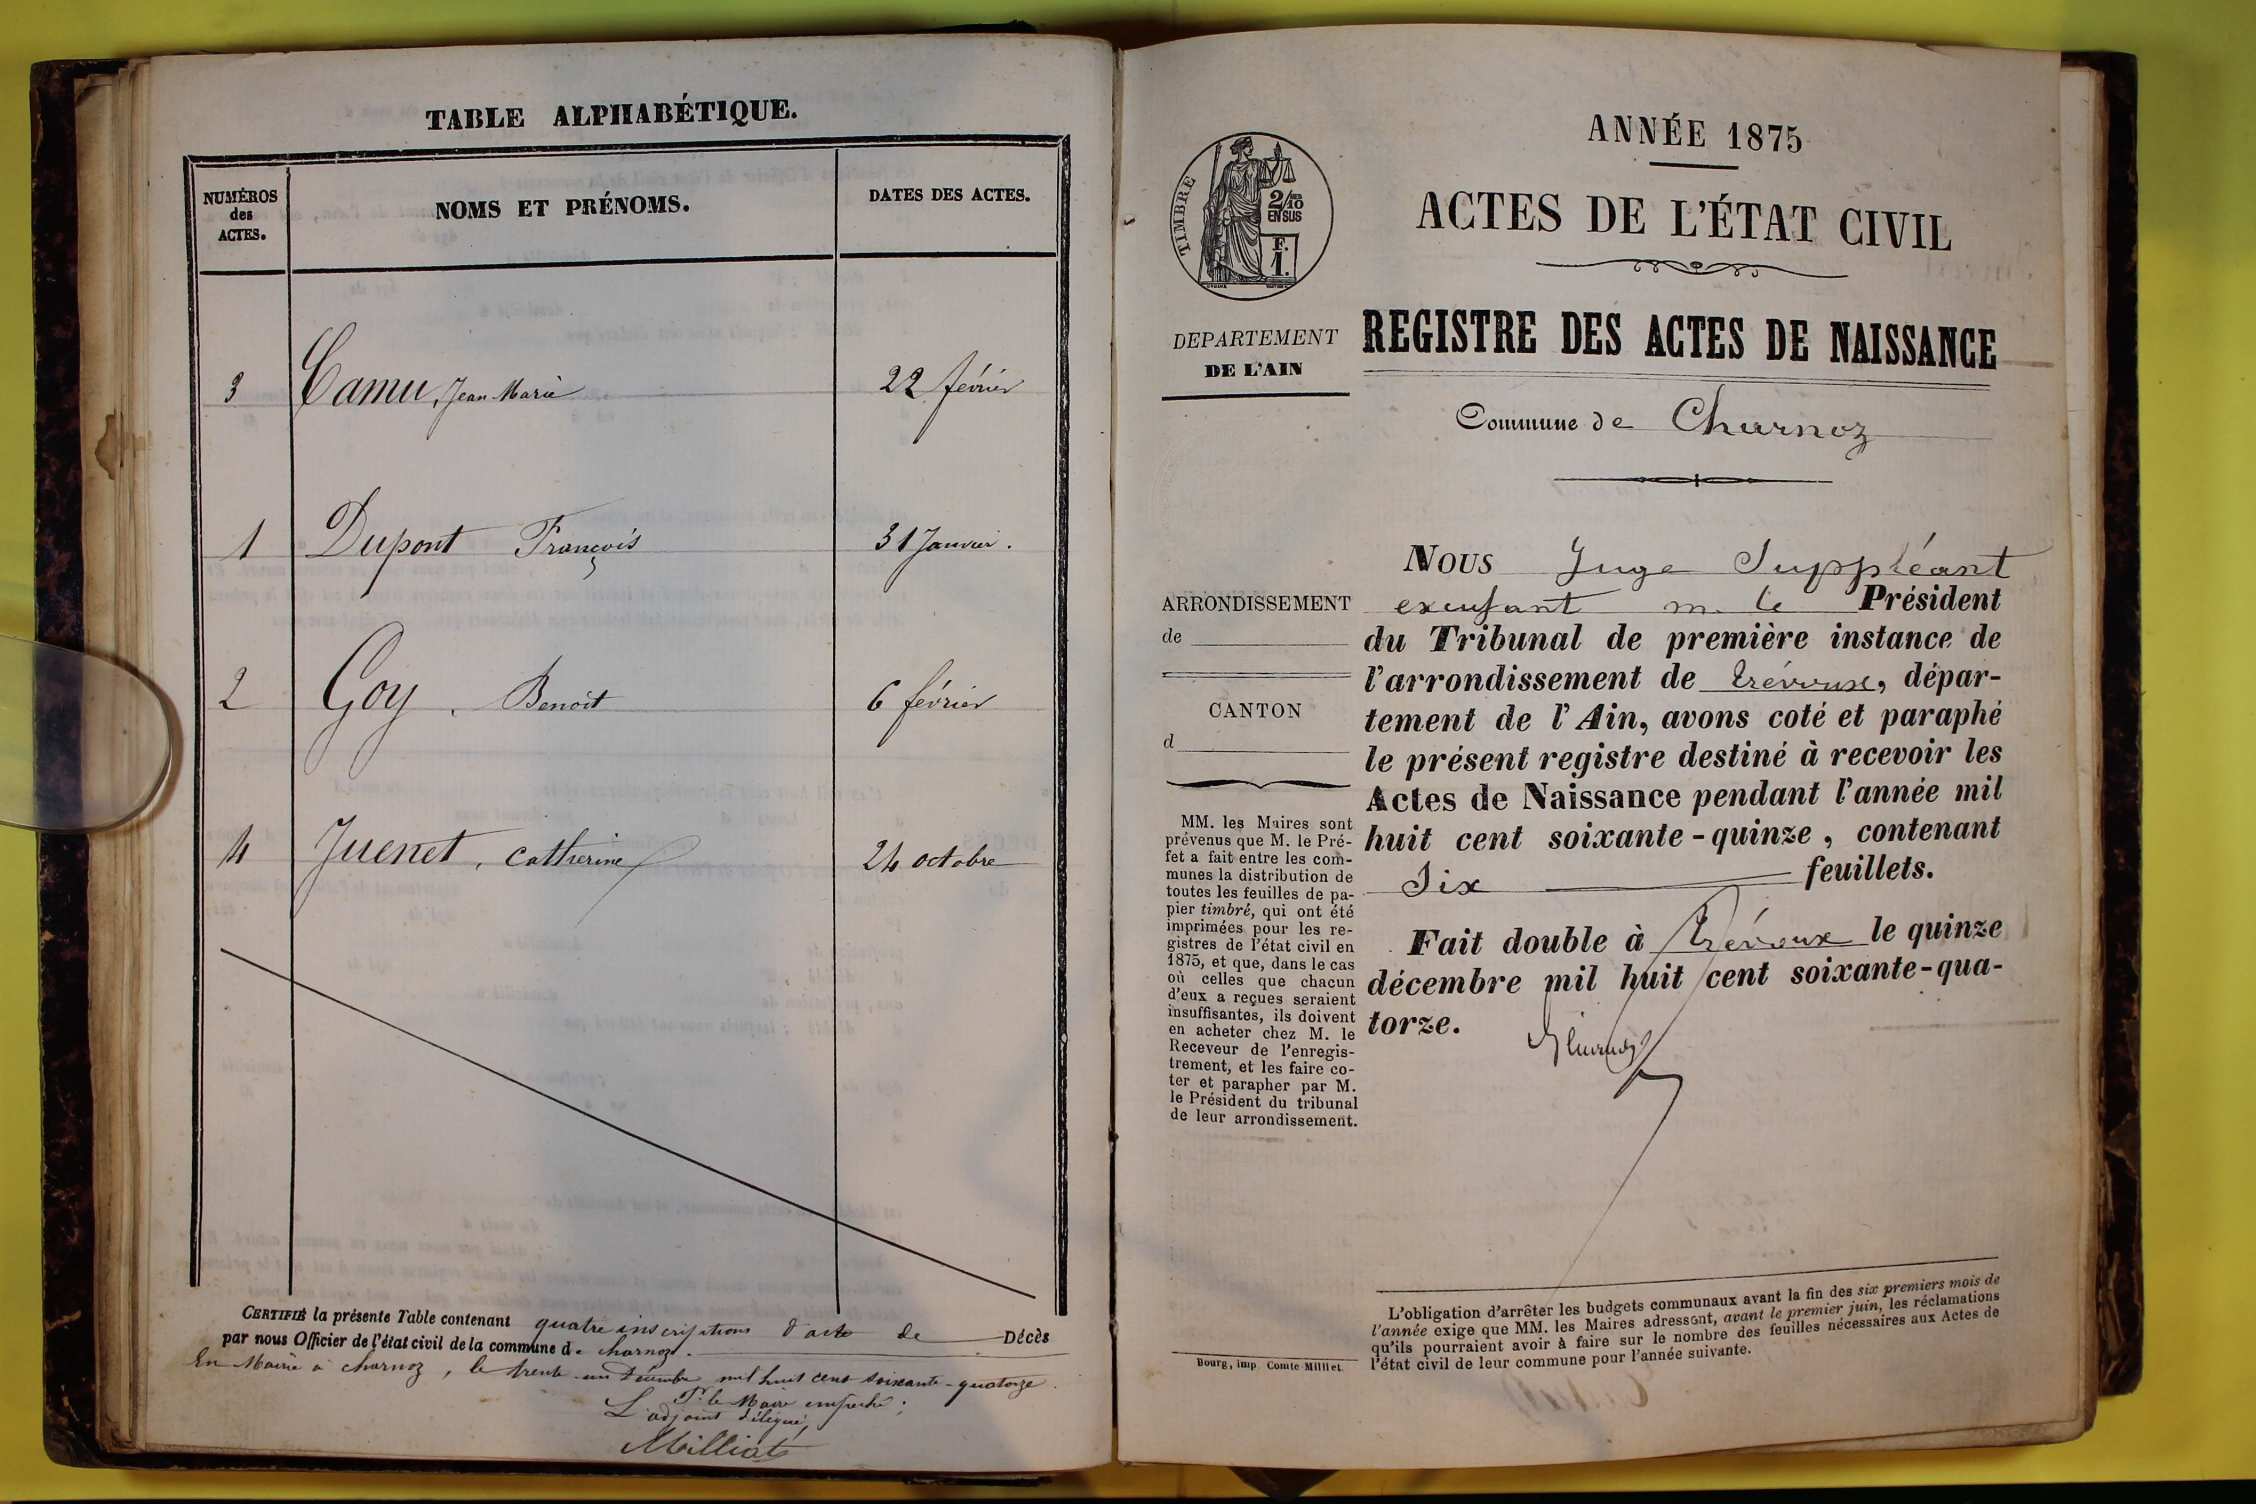 TABLE ALPHABÉTIQUE.
NUMÉROS
des
ACTES.
NOMS ET PRÉNOMS.
DATES DES ACTES.
3 Camu, Jean Marie 22 février
1 Dupont François 31 Janvier.
2 Goy, Benoit 6 février
4 Juenet, Catherine 24 octobre
CERTIFIÉ la présente Table contenant quatre inscriptions d'acte de Décès
par nous Officier de l'état civil de la commune de charnoz.
En Mairie à charnoz, le trente-un Décembre mil huit cent soixante-quatorze.
Pr le Maire empêché;
L'adjoint délégué,
Milliat
ANNÉE 1875
ACTES DE L'ÉTAT CIVIL
TIMBRE
2/10
EN SUS
F.
1.
DEPARTEMENT
DE L'AIN
REGISTRE DES ACTES DE NAISSANCE
Commune de Charnoz
ARRONDISSEMENT
de
CANTON
d
MM. les Maires sont
prévenus que M. le Pré-
fet a fait entre les com-
munes la distribution de
toutes les feuilles de pa-
pier timbré, qui ont été
imprimées pour les re-
gistres de l'état civil en
1875, et que, dans le cas
où celles que chacun
d'eux a reçues seraient
insuffisantes, ils doivent
en acheter chez M. le
Receveur de l'enregis-
trement, et les faire co-
ter et parapher par M.
le Président du tribunal
de leur arrondissement.
Nous Juge Suppléant
m. le Président
du Tribunal de première instance de
l'arrondissement de Trévoux, dépar-
tement de l'Ain, avons coté et paraphé
le présent registre destiné à recevoir les
Actes de Naissance pendant l'année mil
huit cent soixante-quinze, contenant
Six feuillets.
Fait double à Trévoux le quinze
décembre mil huit cent soixante-qua-
torze.
L'obligation d'arrêter les budgets communaux avant la fin des six premiers mois de
l'année exige que MM. les Maires adressent, avant le premier juin, les réclamations
qu'ils pourraient avoir à faire sur le nombre des feuilles nécessaires aux Actes de
l'état civil de leur commune pour l'année suivante.
Bourg, imp. Comte Milliet.